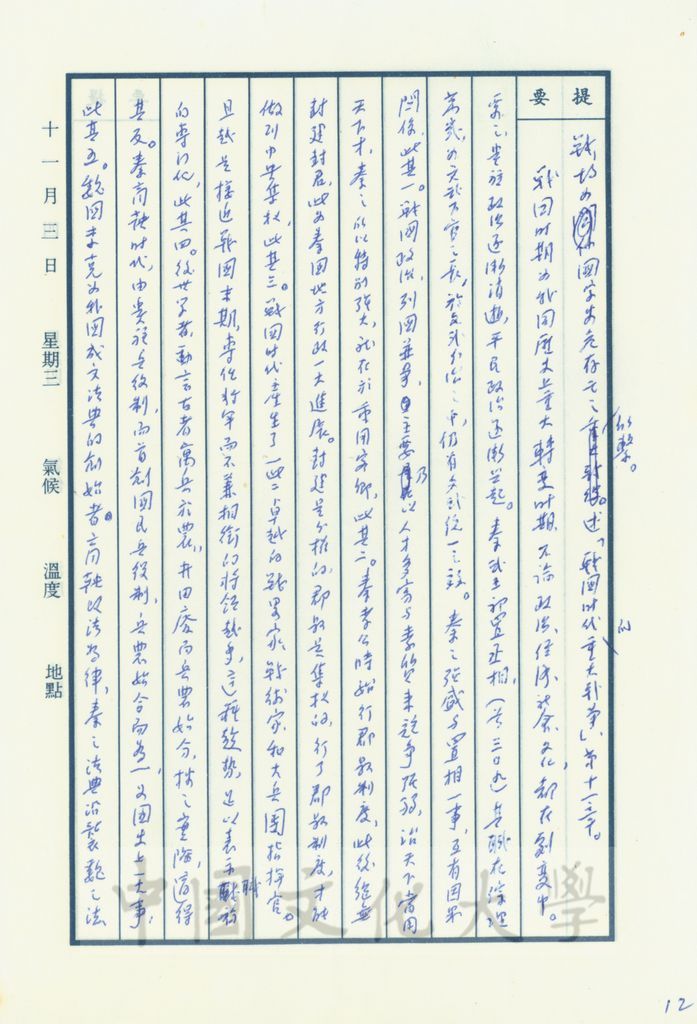 提要
戰場為國家生死存亡之所繫。述「戰國時代的重大戰爭」第十二章。
戰國時期為我國歷史上重大轉變時期，不論政治、經濟、社會、文化，都在劇變中。
要之，貴族政治逐漸消逝，平民政治逐漸興起。秦武王初置丞相，（前三〇九）其職在綜理
萬幾，為文武百官之長，於文武分治之中，仍有文武統一之效。秦之強盛與置相一事，互有因果
關係，此其一。戰國政治，列國並爭，主要乃以人才多寡與素質來競爭強弱，治天下當用
天下才，秦之所以特別強大，就在於重用客卿，此其二。秦孝公時始行郡縣制度，此後絕無
封建封君，此為秦國地方行政一大進展。封建是分權的，郡縣是集權的，行了郡縣制度，才能
做到中央集權，此其三。戰國時代產生了一些卓越的戰略家、戰術家和大兵團指揮官。
且越是接近戰國末期，專任將軍而不兼相銜的將領越多，這種趨勢，足以表示職務
的專門化，此其四。後世學者，動言古者寓兵於農，井田廢而兵農始分，揆之實際，適得
其反。秦商鞅時代，由貴族兵役制，而首創國民兵役制，兵農始合而為一，又國史上一大事，
此其五。魏國李克為我國成文法典的創始者。商鞅改法為律，秦之法典沿襲魏之法
十一月三日 星期三 氣候 溫度 地點
中國文化大學
12